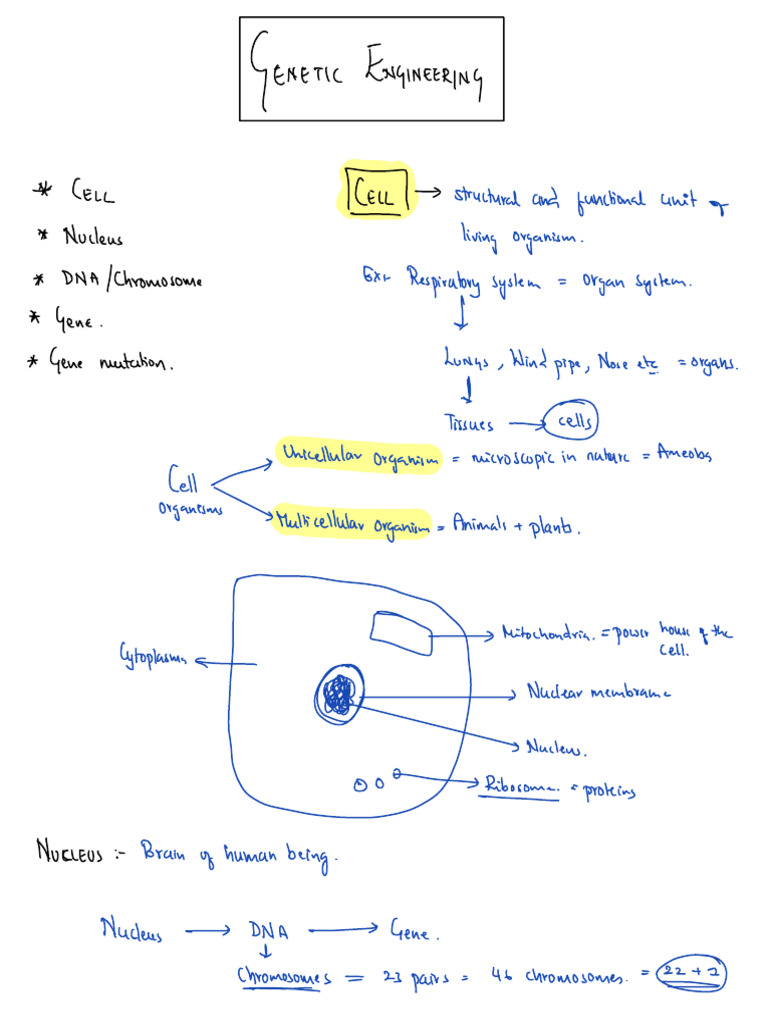 GENETIC ENGINEERING
* CELL
* Nucleus
* DNA/Chromosome
* Gene.
* Gene mutation.
CELL → structural and functional unit of
living organism.
Ex:- Respiratory system = organ system.
Lungs, Wind pipe, Nose etc = organs.
Tissues → cells
Cell
organisms
Unicellular organism = microscopic in nature = Ameoba
Multicellular organism = Animals + plants.
Mitochondria. = power house of the
cell.
Cytoplasm
Nuclear membrane
Nucleus.
Ribosome. = proteins
NUCLEUS :- Brain of human being.
Nucleus → DNA → Gene.
Chromosomes = 23 pairs = 46 chromosomes. = 22 + 1